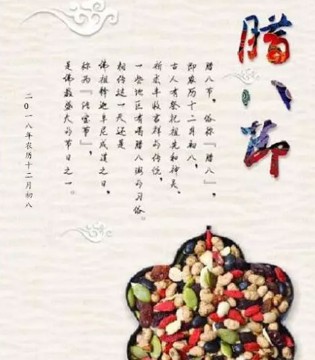 腊八节
腊八节，俗称“腊八”，
即农历十二月初八，
古人有祭祀祖先和神灵、
祈求丰收吉祥的传统，
一些地区有喝腊八粥的习俗。
相传这一天还是
佛祖释迦牟尼成道之日，
称为“法宝节”，
是佛教盛大的节日之一。
二〇一八年农历十二月初八